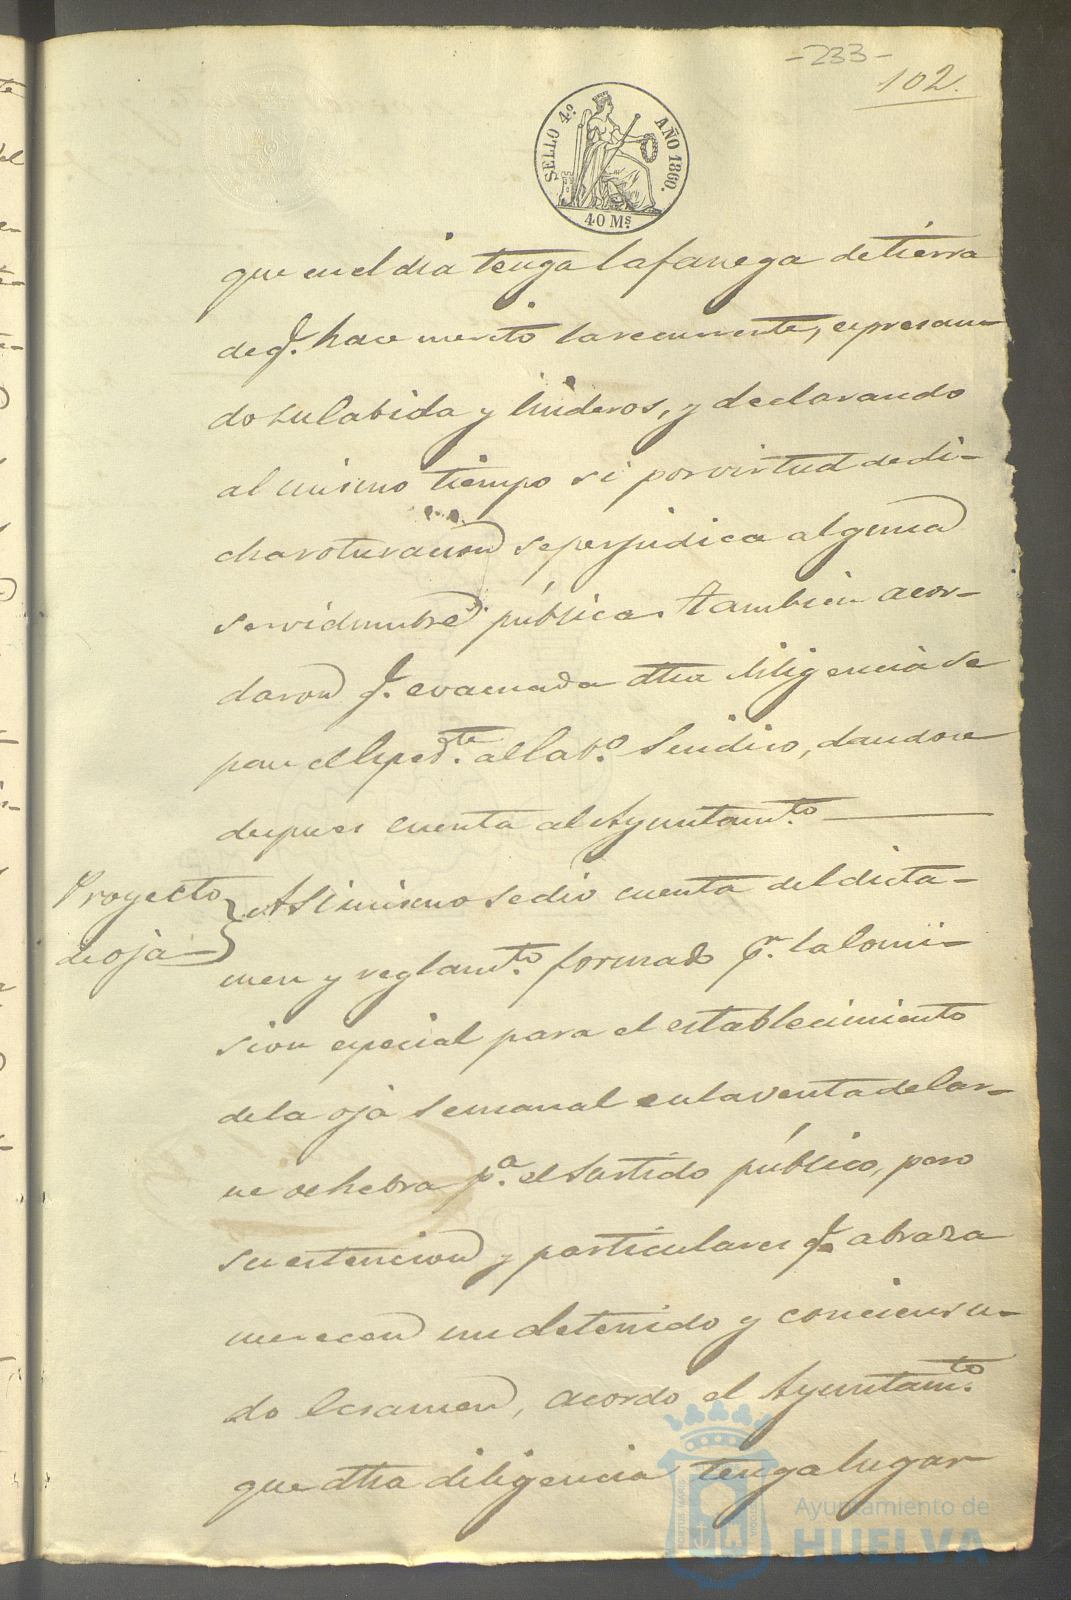 -233-
102.
SELLO 4º AÑO 1860.
40 Ms
que en el dia tenga la fanega de tierra
de q. hace merito la recurrente, espresan-
do su cabida y linderos, y declarando
al mismo tiempo si por virtud de di-
cha roturacion se perjudica alguna
servidumbre pública. Tambien acor-
daron q. evacuada dha diligencia se
pase el Exped.te al Cab.o Sindico, dandose
despues cuenta al Ayuntam.to
Proyecto
de oja
Asimismo se dio cuenta del dicta-
men y reglam.to formado p.r la Comi-
sion especial para el establecimiento
de la oja semanal en la venta de Car-
ne de hebra p.a el Surtido público, pero
su estencion y particulares q. abraza
merecen un detenido y conciensu-
do Ecsamen, acordo el Ayuntam.to
que dha diligencia tenga lugar
Ayuntamiento de
HUELVA